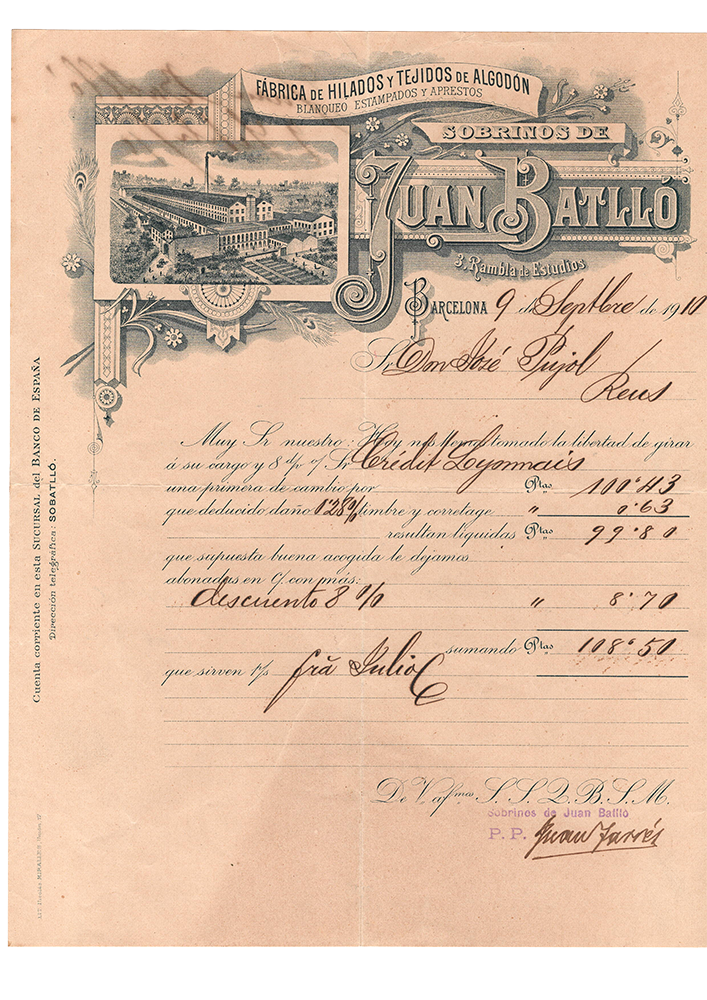 FÁBRICA DE HILADOS Y TEJIDOS DE ALGODÓN
BLANQUEO ESTAMPADOS Y APRESTOS
SOBRINOS DE
JUAN BATLLÓ
3, Rambla de Estudios
BARCELONA 9 de Septbre de 1910
Sr Don José Pujol
Reus
Muy Sr nuestro: Hoy nos hemos tomado la libertad de girar
á su cargo y 8 d/v o/ Sr Crédit Lyonnais
una primera de cambio por Ptas 100'43
que deducido daño 0'28 % timbre y corretage " 0'63
resultan líquidas Ptas 99'80
que supuesta buena acogida le dejamos
abonadas en C/ con más:
descuento 8 % " 8'70
sumando Ptas 108'50
que sirven p/s fra Julio
De V. afmos. S. S. Q. B. S. M.
Sobrinos de Juan Batlló
P. P. Juan Farrés
Cuenta corriente en esta SUCURSAL del BANCO DE ESPAÑA
Dirección telegráfica: SOBATLLÓ.